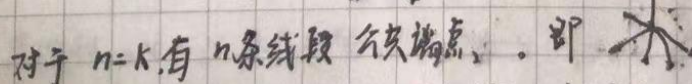 对于 n=k.有 n条线段 公共端点、. 即